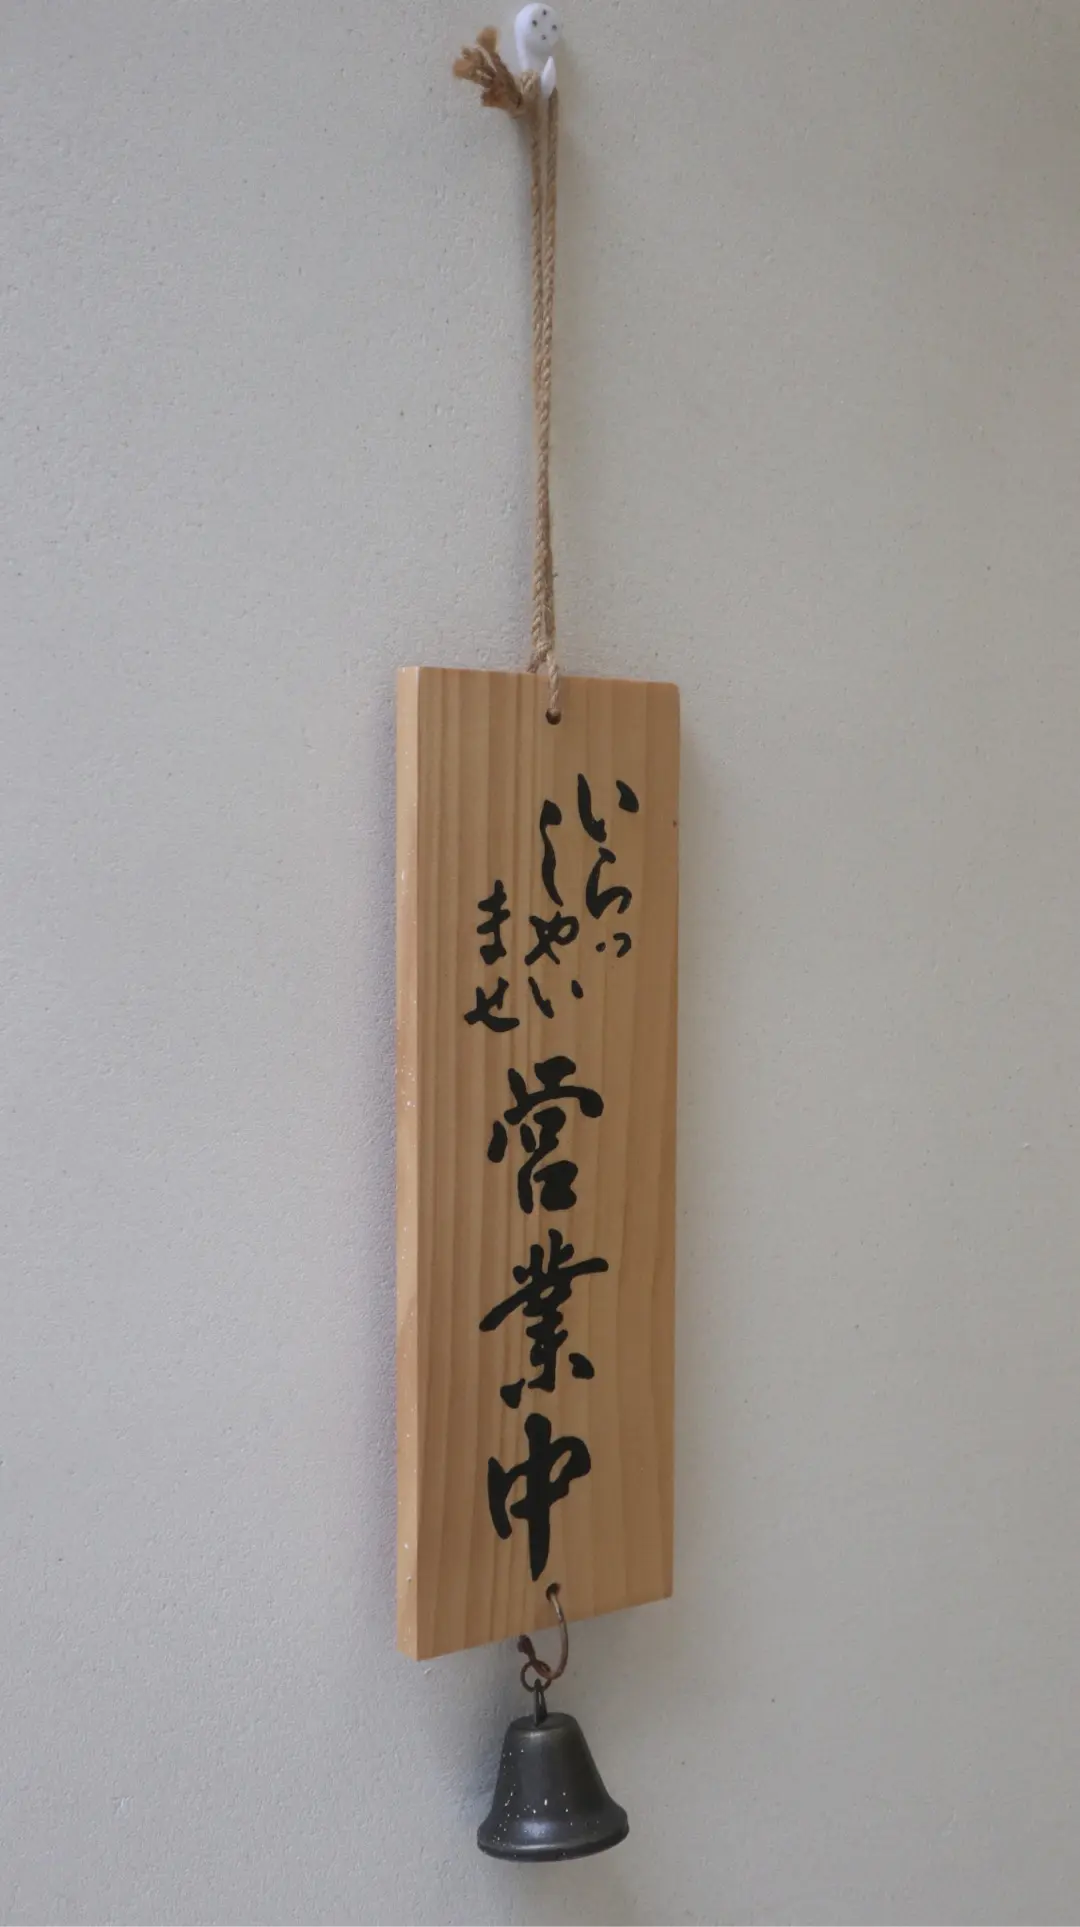 いらっ
しゃい
ませ
営業中